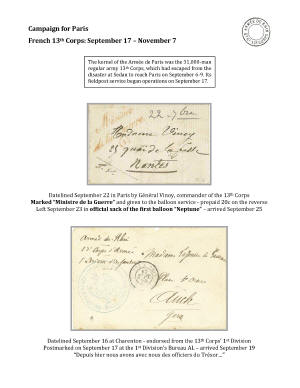 Campaign for Paris
French 13th Corps: September 17 – November 7
The kernel of the Armée de Paris was the 31,000-man
regular army 13th Corps, which had escaped from the
disaster at Sedan to reach Paris on September 6-9. Its
fieldpost service began operations on September 17.
22 7bre
Madame Vinoy
25 quai de la
Nantes
Datelined September 22 in Paris by Général Vinoy, commander of the 13th Corps
Marked "Ministre de la Guerre" and given to the balloon service - prepaid 20c on the reverse
Left September 23 in official sack of the first balloon "Neptune" – arrived September 25
Armée du Rhin
Madame
Auch
Gers
Datelined September 16 at Charenton - endorsed from the 13th Corps' 1st Division
Postmarked on September 17 at the 1st Division's Bureau AL – arrived September 19
"Depuis hier nous avons avec nous des officiers du Trésor..."